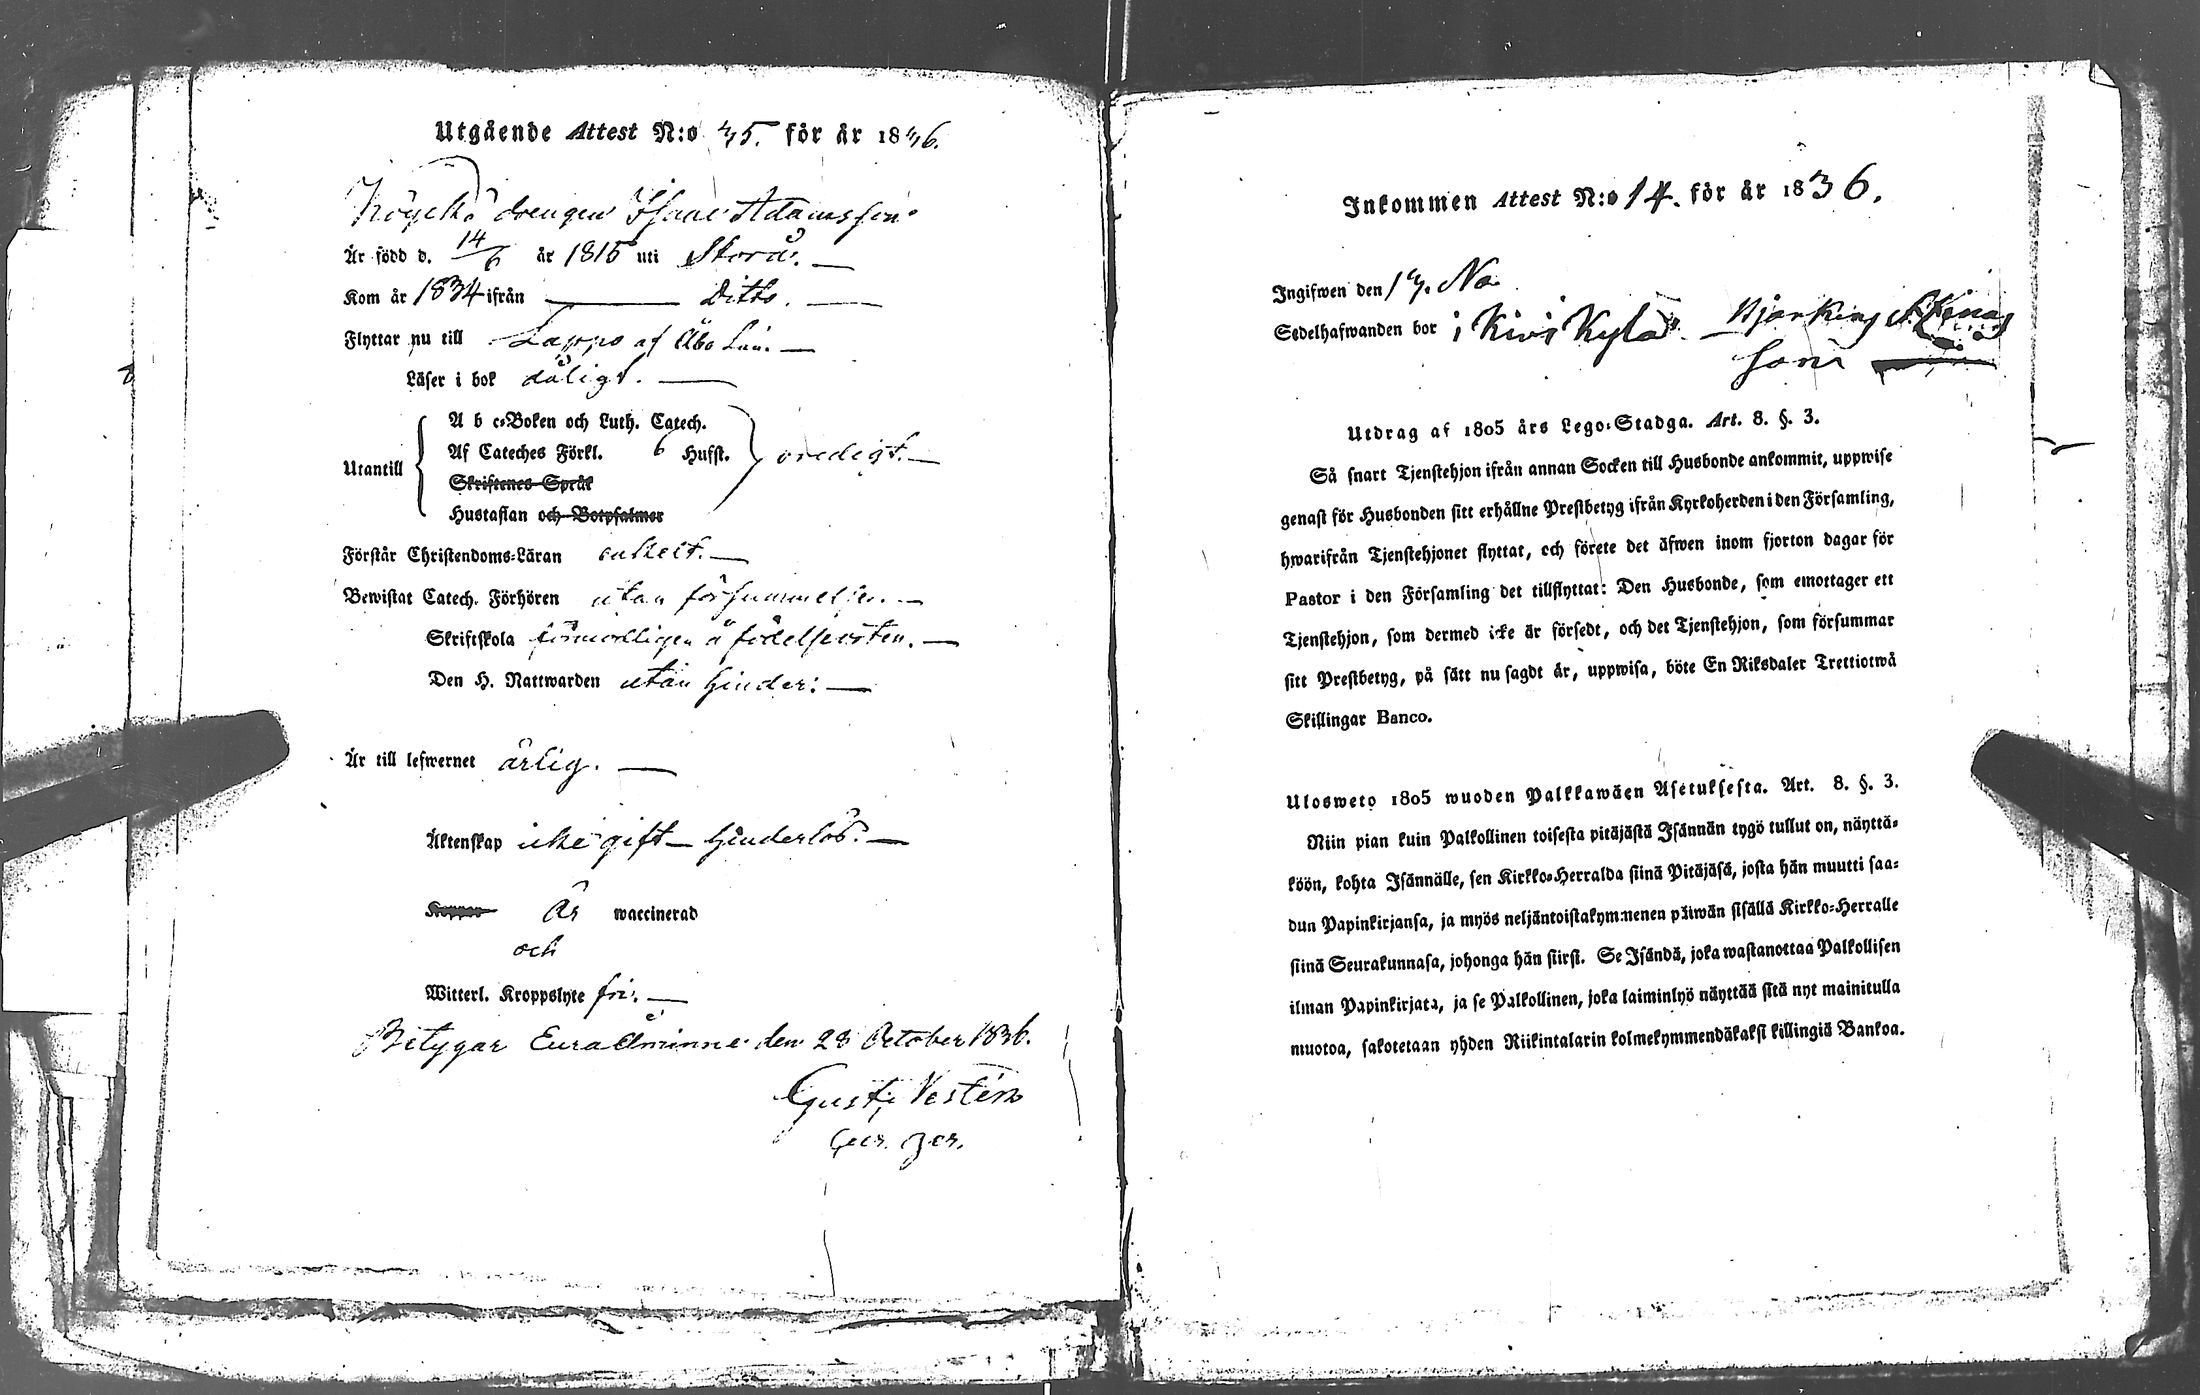 Utgående Attest N:o 45. för år 1836.
drengen Isaac Adamsson
Är född d. 14/6 år 1815 uti
Kom år 1834 ifrån Ditto.
Flyttar nu till Lappo af Åbo Län.
Läser i bok dåligt.
A b c-Boken och Luth. Catech.
Af Cateches Förkl. 6 Hufst.
Utantill oredigt.
Skriftenes Språk
Hustaflan och Botpsalmer
Förstår Christendoms-Läran enkelt.
Bewistat Catech. Förhören utan försummelse.
Skriftskola förmodligen å födelseorten.
Den H. Nattwarden utan hinder.
Är till lefwernet ärlig.
Äktenskap icke gift - hinderlös.
Koppor Är waccinerad
och
Witterl. Kroppslyte fri.
Betygar Euraåminne den 28 October 1836.
Gust. Vestén
Inkommen Attest N:o 14. för år 1836.
Ingifwen den 17. No
Sedelhafwanden bor i Kivikylä
Utdrag af 1805 års Lego-Stadga. Art. 8. §. 3.
Så snart Tjenstehjon ifrån annan Socken till Husbonde ankommit, uppwise
genast för Husbonden sitt erhållne Prestbetyg ifrån Kyrkoherden i den Församling,
hwarifrån Tjenstehjonet flyttat, och förete det äfwen inom fjorton dagar för
Pastor i den Församling det tillflyttat: Den Husbonde, som emottager ett
Tjenstehjon, som dermed icke är försedt, och det Tjenstehjon, som försummar
sitt Prestbetyg, på sätt nu sagdt är, uppwisa, böte En Riksdaler Trettiotwå
Skillingar Banco.
Ulosweto 1805 wuoden Palkkawäen Asetuksesta. Art. 8. §. 3.
Niin pian kuin Palkollinen toisesta pitäjästä Isännän tygö tullut on, näyttä-
köön, kohta Isännälle, sen Kirkko-Herralda siinä Pitäjäsä, josta hän muutti saa-
dun Papinkirjansa, ja myös neljäntoistakymmenen päiwän sisällä Kirkko-Herralle
siinä Seurakunnasa, johonga hän siirst. Se Isändä, joka wastanottaa Palkollisen
ilman Papinkirjata, ja se Palkollinen, joka laiminlyö näyttää sitä nyt mainitulla
muotoa, sakotetaan yhden Riikintalarin kolmekymmendäkaksi killingiä Bankoa.